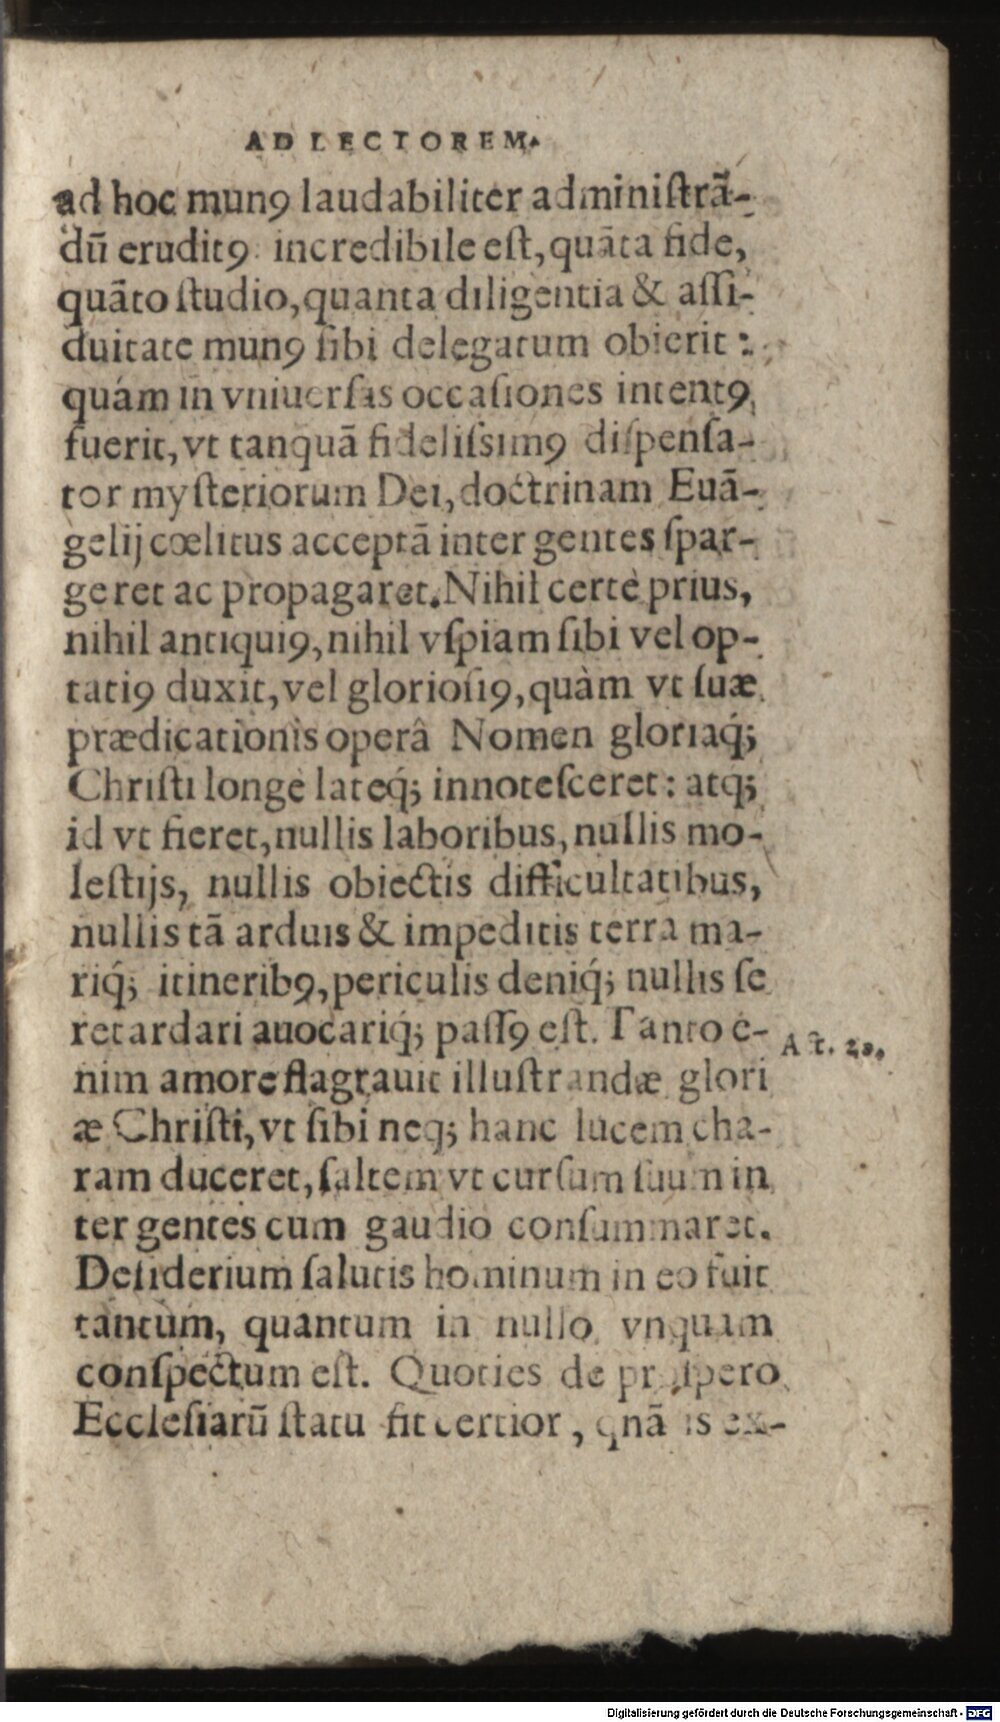 AD LECTOREM.
ad hoc munꝰ laudabiliter adminiſtrã-
dũ eruditꝰ incredibile eſt, quãta fide,
quãto ſtudio, quanta diligentia & aſſi-
duitate munꝰ ſibi delegatum obierit:
quám in vniuerſas occaſiones intentꝰ
fuerit, vt tanquã fideliſsimꝰ diſpenſa-
tor myſteriorum Dei, doctrinam Euã-
gelij cœlitus acceptã inter gentes ſpar-
geret ac propagaret. Nihil certè prius,
nihil antiquiꝰ, nihil vſpiam ſibi vel op-
tatiꝰ duxit, vel glorioſiꝰ, quàm vt ſuæ
prædicationis operâ Nomen gloriaq́;
Chriſti longè lateq́; innoteſceret: atq́;
id vt fieret, nullis laboribus, nullis mo-
leſtijs, nullis obiectis difficultatibus,
nullis tã arduis & impeditis terra ma-
riq́; itineribꝰ, periculis deniq́; nullis ſe
retardari auocariq́; paſſꝰ eſt. Tanto e-
nim amore flagrauit illuſtrandæ glori
æ Chriſti, vt ſibi neq; hanc lucem cha-
ram duceret, ſaltem vt curſum ſuum in
ter gentes cum gaudio conſummaret.
Deſiderium ſalutis hominum in eo fuit
tantum, quantum in nullo vnquam
conſpectum eſt. Quoties de proſpero
Eccleſiarũ ſtatu fit certior, qnã is ex-
Act. 20.
Digitalisierung gefördert durch die Deutsche Forschungsgemeinschaft - DFG